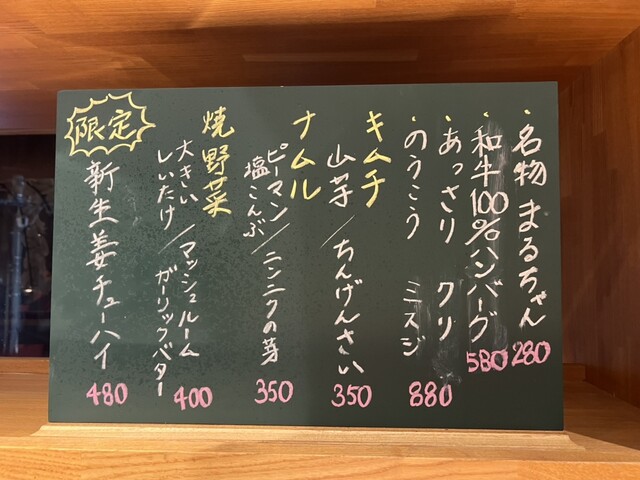 ・名物 まるちゃん 280
・和牛100%ハンバーグ 580
・あっさり クリ
・のうこう ミスジ 880
キムチ
山芋/ちんげんさい 350
ナムル
ピーマン塩こんぶ/ニンニクの芽 350
焼野菜
大きいしいたけ/マッシュルームガーリックバター 400
限定
新生姜チューハイ 480